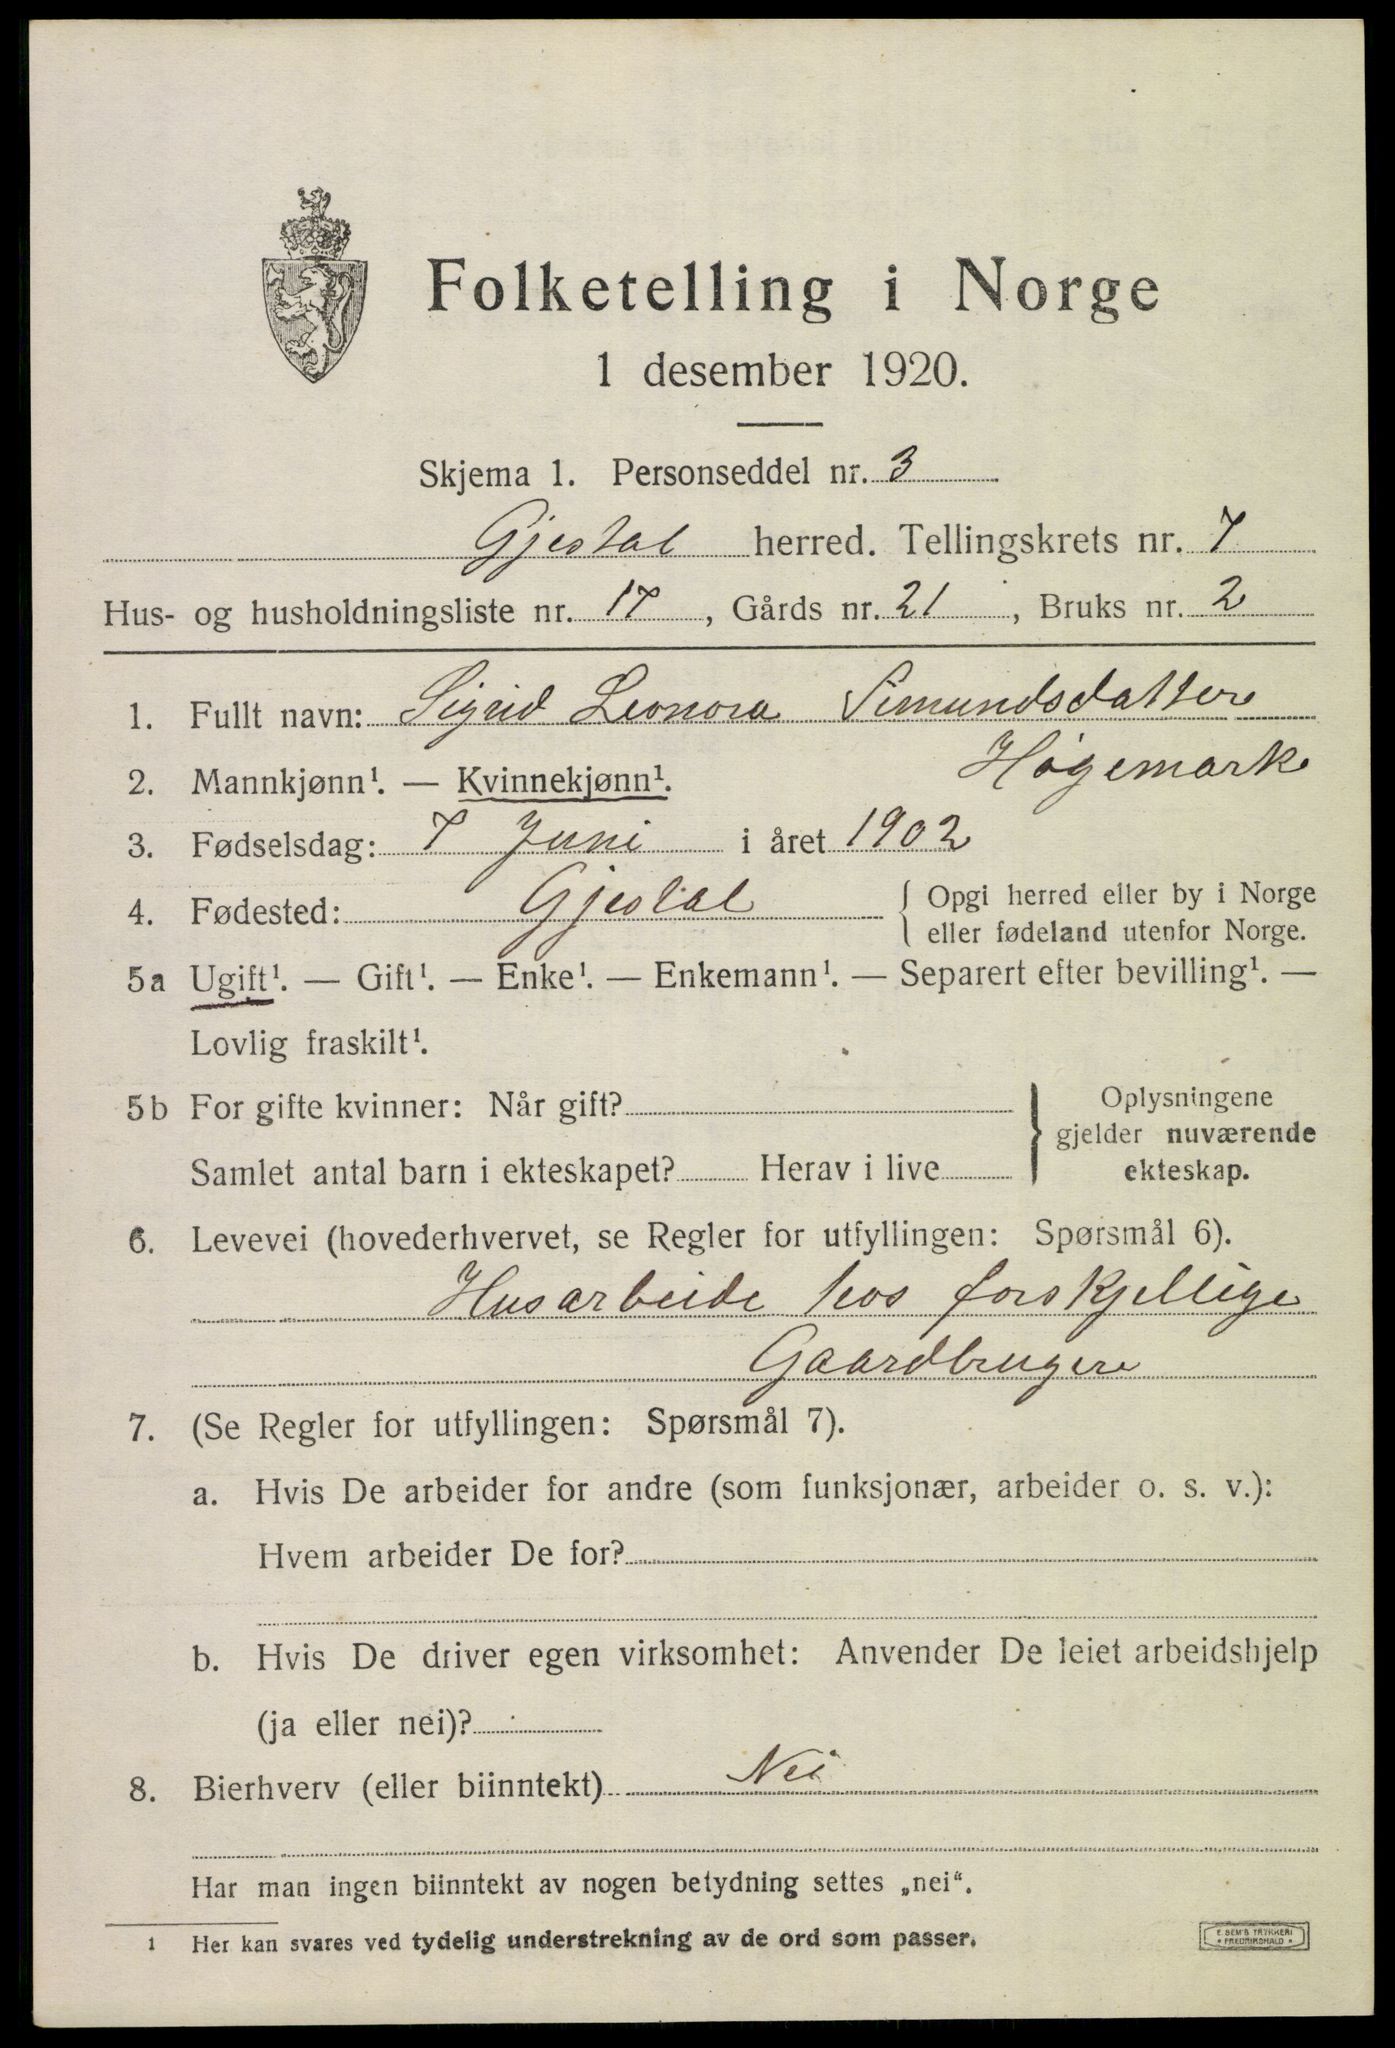 Folketelling i Norge
1 desember 1920.
Skjema 1. Personseddel nr. 3
Gjestal herred. Tellingskrets nr. 7
Hus- og husholdningsliste nr. 17, Gårds nr. 21, Bruks nr. 2
1. Fullt navn: Sigrid Leonora Simundsdatter
Høgemark
2. Mannkjønn¹. — Kvinnekjønn¹.
3. Fødselsdag: 7 Juni i året 1902
4. Fødested: Gjestal { Opgi herred eller by i Norge
eller fødeland utenfor Norge.
5a Ugift¹. — Gift¹. — Enke¹. — Enkemann¹. — Separert efter bevilling¹. —
Lovlig fraskilt¹.
5b For gifte kvinner: Når gift?
Samlet antal barn i ekteskapet? Herav i live
} Oplysningene
gjelder nuværende
ekteskap.
6. Levevei (hovederhvervet, se Regler for utfyllingen: Spørsmål 6).
Husarbeide hos forskjellige
Gaardbrugere
7. (Se Regler for utfyllingen: Spørsmål 7).
a. Hvis De arbeider for andre (som funksjonær, arbeider o. s. v.):
Hvem arbeider De for?
b. Hvis De driver egen virksomhet: Anvender De leiet arbeidshjelp
(ja eller nei)?
8. Bierhverv (eller biinntekt) Nei
Har man ingen biinntekt av nogen betydning settes „nei“.
1 Her kan svares ved tydelig understrekning av de ord som passer.
E SEM'S TRYKKERI
* FREDRIKSHALD *